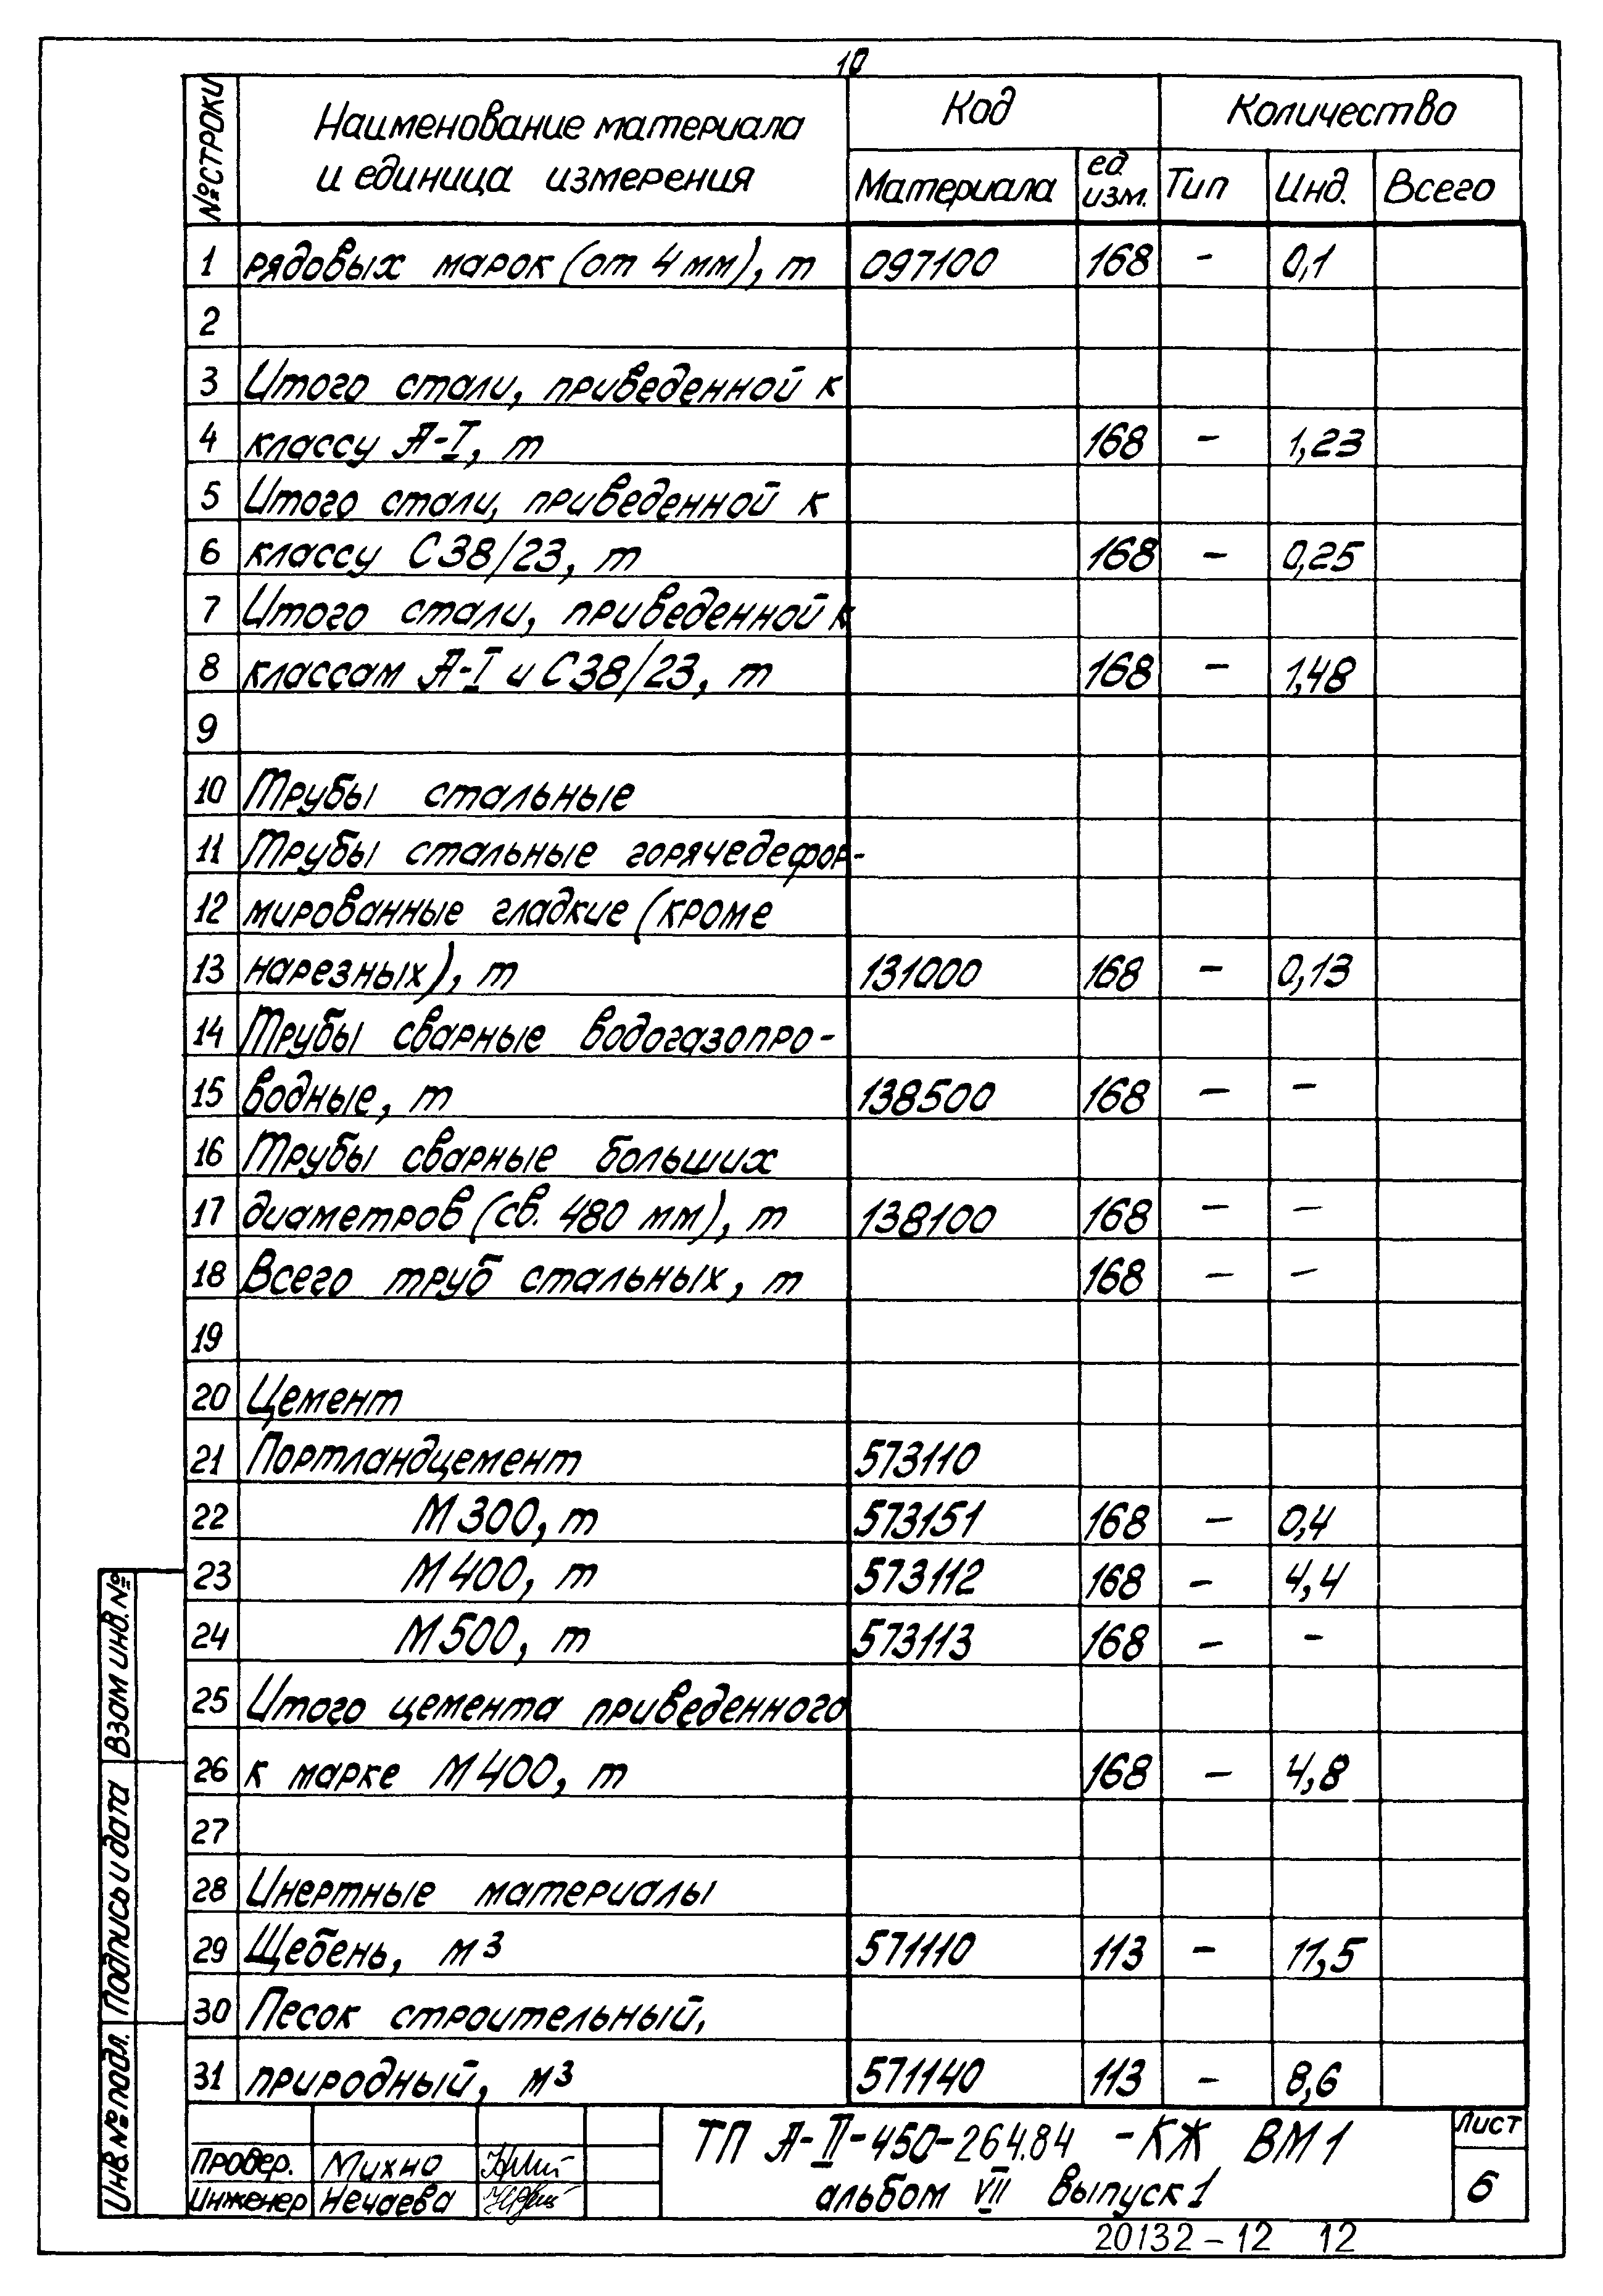 10
№ строки Наименование материала и единица измерения Код Количество
Материала ед. изм. Тип Инд. Всего
1 рядовых марок (от 4 мм), т 097100 168 - 0,1
2
3 Итого стали, приведенной к
4 классу А-I, т 168 - 1,23
5 Итого стали, приведенной к
6 классу С38/23, т 168 - 0,25
7 Итого стали, приведенной к
8 классам А-I и С38/23, т 168 - 1,48
9
10 Трубы стальные
11 Трубы стальные горячедефор-
12 мированные гладкие (кроме
13 нарезных), т 131000 168 - 0,13
14 Трубы сварные водогазопро-
15 водные, т 138500 168 - -
16 Трубы сварные больших
17 диаметров (св. 480 мм), т 138100 168 - -
18 Всего труб стальных, т 168 - -
19
20 Цемент
21 Портландцемент 573110
22 М300, т 573151 168 - 0,4
23 М400, т 573112 168 - 4,4
24 М500, т 573113 168 - -
25 Итого цемента приведенного
26 к марке М400, т 168 - 4,8
27
28 Инертные материалы
29 Щебень, м³ 571110 113 - 11,5
30 Песок строительный,
31 природный, м³ 571140 113 - 8,6
Взам инв. №
Подпись и дата
Инв. № подл.
Провер. Михно
Инженер Нечаева
ТП А-II-450-264.84 -КЖ ВМ1
альбом VII Выпуск 1
Лист
6
20132-12 12